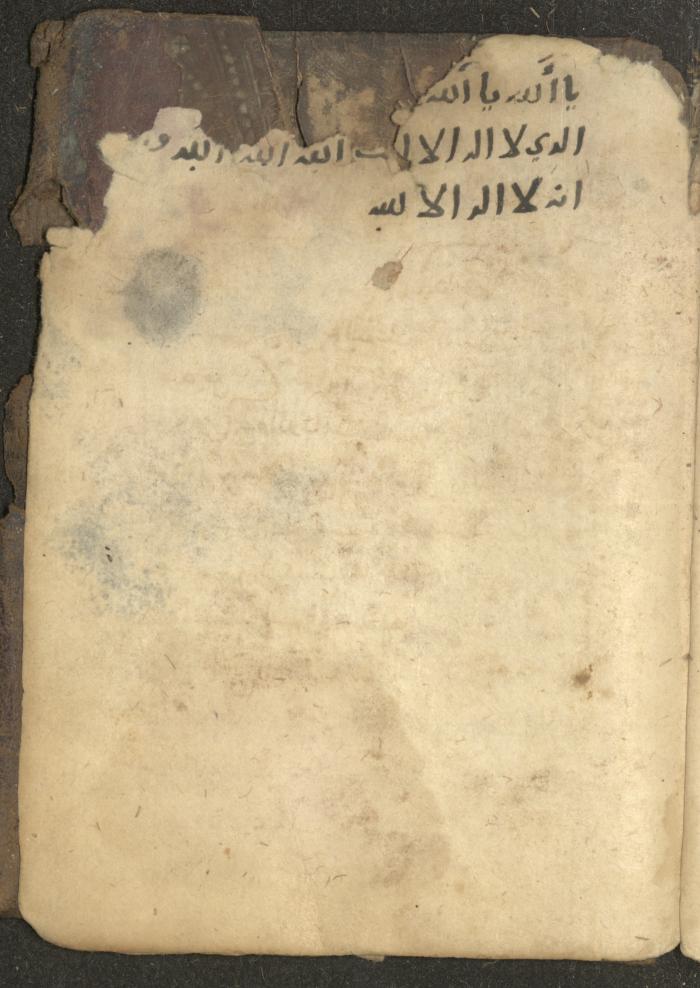 يا ألله يا ألله
الذي لا اله الا انت الله الله الله
انه لا اله الا الله